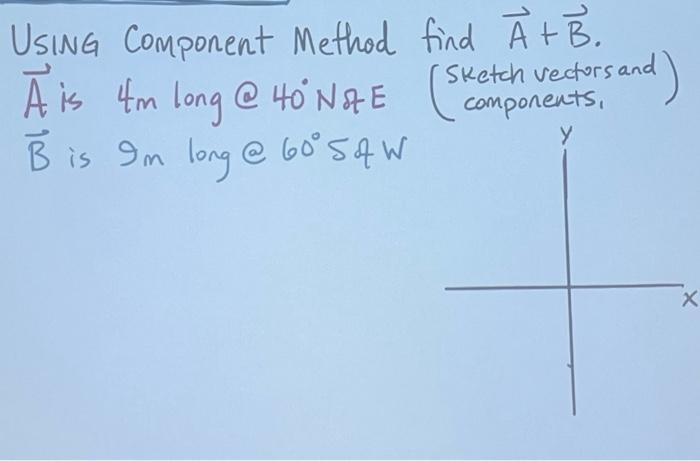 USING Component Method find A + B.
A is 4m long @ 40° N of E (Sketch vectors and components.)
B is 9m long @ 60° S of W
y
x